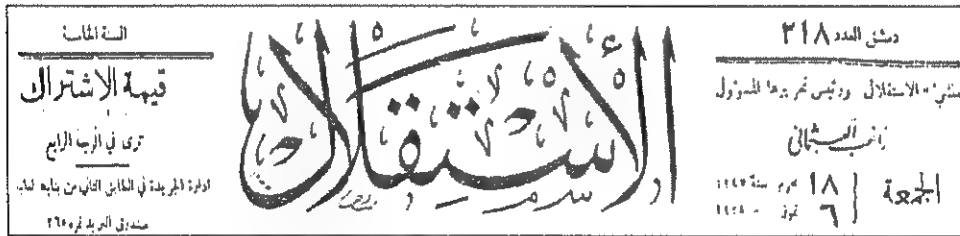 دمشق العدد ٣١٨
منشيء الاستقلال ورئيس تحريرها المسؤول
راتب العثماني
الجمعة
١٨ محرم سنة ١٣٤٧
٦ تموز ١٩٢٨
الاستقلال
السنة الخامسة
قيمة الاشتراك
ترى في الوجه الرابع
ادارة الجريدة في الطابق الثاني من بناية
صندوق البريد نمره ٢٦٥